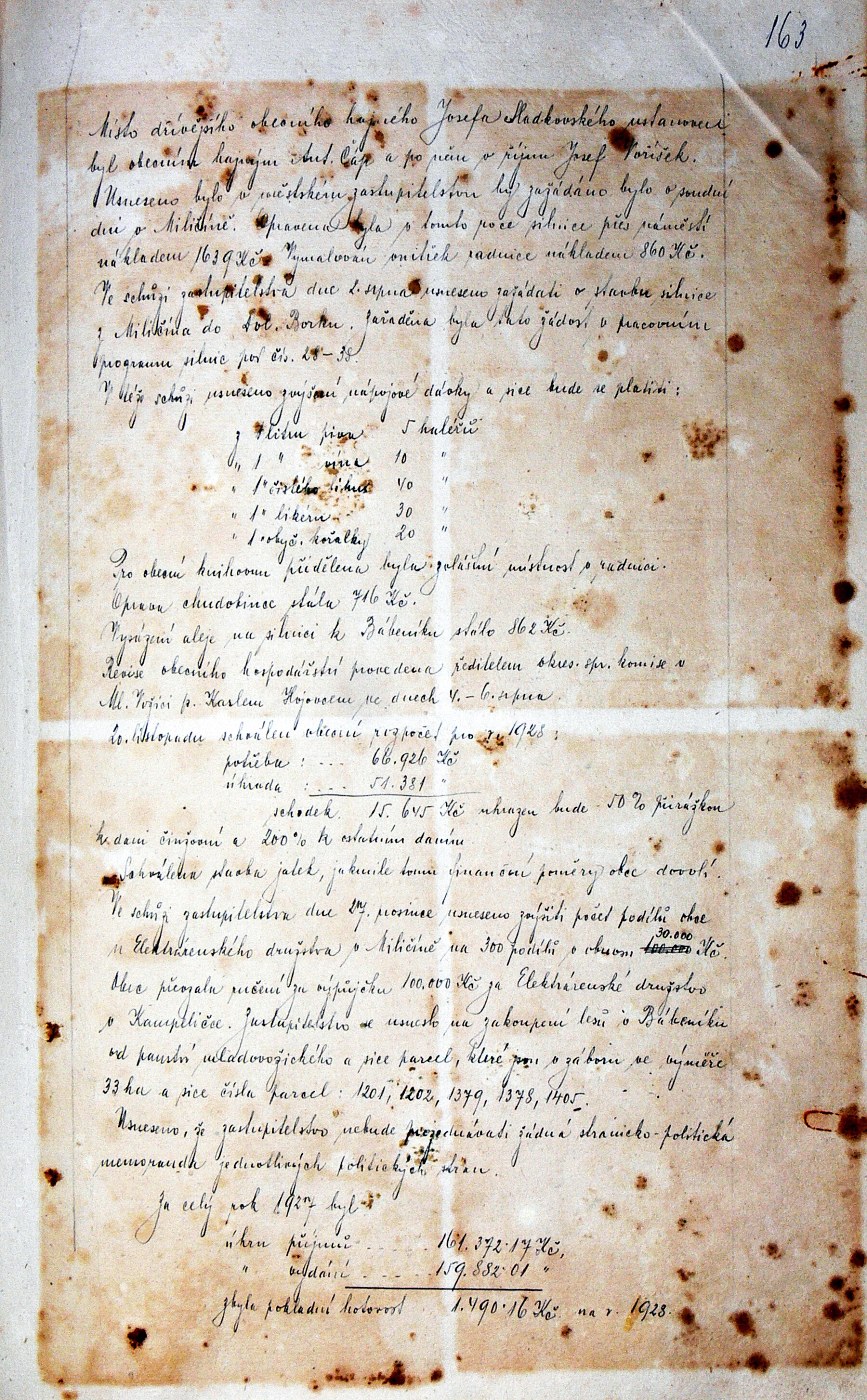 163
Místo dřívějšího obecního hajného Josefa Sladkovského ustanoven
byl obecním hajným Ant. Čáp a po něm v říjnu Josef Voříšek.
Usneseno bylo v městském zastupitelstvu by zažádáno bylo o soudní
dni v Miličíně. Opravena byla v tomto roce silnice přes náměstí
nákladem 1639 Kč. Vymalován vnitřek radnice nákladem 860 Kč.
Ve schůzi zastupitelstva dne 2. srpna usneseno zažádati o stavbu silnice
z Miličína do Dol. Borku. Zařaděna byla tato žádost v pracovním
programu silnic pod čís. 28-38.
V téže schůzi usneseno zvýšení nápojové dávky a sice bude se platiti:
z 1 litru piva 5 haléřů
" 1 " vína 10 "
" 1 " čistého lihu 40 "
" 1 " likeru 30 "
" 1 " obyč. kořalky 20 "
Pro obecní knihovnu přidělena byla zvláštní místnost v radnici.
Oprava chudobince stála 716 Kč.
Vysázení aleje na silnici k Bábeníku stálo 862 Kč.
Revise obecního hospodářství provedena ředitelem okres. spr. komise v
Ml. Vožici p. Karlem Hojovcem ve dnech 4.-6. srpna.
20. listopadu schválen obecní rozpočet pro r. 1928:
potřeba : ... 66.926 Kč
úhrada : ... 51.381 "
schodek 15.645 Kč uhrazen bude 50% přirážkou
k dani činžovní a 200% k ostatním daním
Schválena stavba jatek, jakmile tomu finanční poměry obce dovolí.
Ve schůzi zastupitelstva dne 27. prosince usneseno zvýšiti počet podílů obce
30.000
u Elektrárenského družstva v Miličíně na 300 podílů v obnosu 100.000 Kč.
Obec převzala ručení za výpůjčku 100.000 Kč za Elektrárenské družstvo
v Kampeličce. Zastupitelstvo se usneslo na zakoupení lesů v Bábeníku
od panství mladovožického a sice parcel, které jsou v záboru ve výměře
33 ha a sice čísla parcel: 1201, 1202, 1379, 1378, 1405.
Usneseno, že zastupitelstvo nebude projednávati žádná stranicko-politická
memoranda jednotlivých politických stran.
Za celý rok 1927 byl
úhrn příjmů ..... 161.372.17 Kč,
" vydání ..... 159.882.01 "
zbyla pokladní hotovost 1.490.16 Kč na r. 1928.